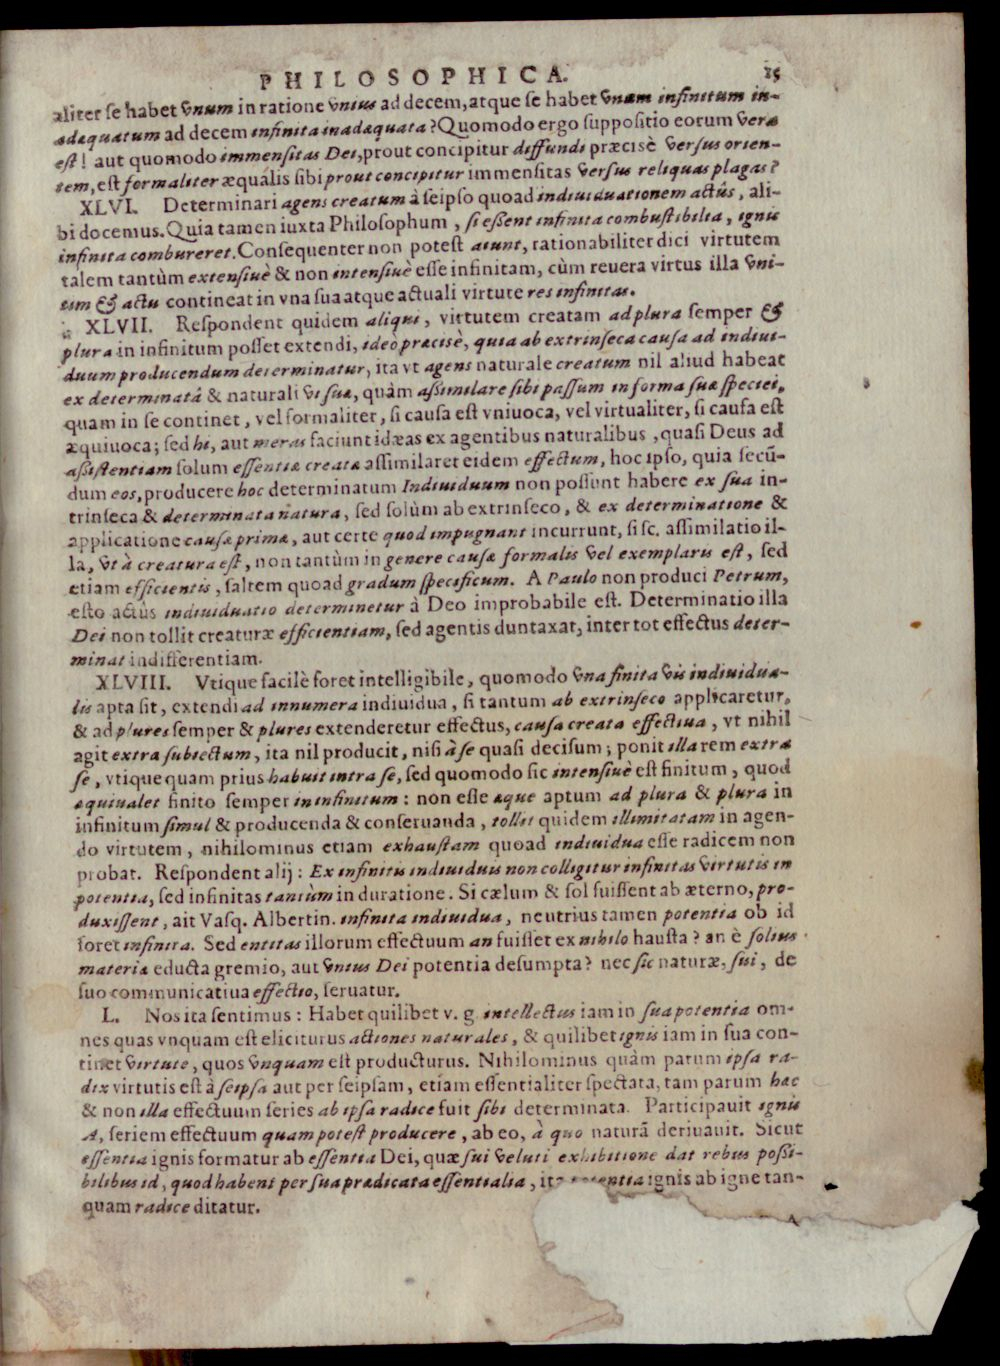 PHILOSOPHICA. 15
aliter se habet vnum in ratione vnius ad decem, atque se habet vnum infinitum in-
adæquatum ad decem infinita inadæquata? Quomodo ergo suppositio eorum vera
est! aut quomodo immensitas Dei, prout concipitur diffundi præcisè versus orien-
tem, est formaliter æqualis sibi prout concipitur immensitas versus reliquas plagas?
XLVI. Determinari agens creatum à seipso quoad indiuiduationem actûs, ali-
bi docemus. Quia tamen iuxta Philosophum, si eßent infinita combustibilia, ignis
infinita combureret. Consequenter non potest aiunt, rationabiliter dici virtutem
talem tantùm extensiuè & non intensiuè esse infinitam, cùm reuera virtus illa vni-
tim & actu contineat in vna sua atque actuali virtute res infinitas.
XLVII. Respondent quidem aliqui, virtutem creatam ad plura semper &
plura in infinitum posset extendi, ideo præcisè, quia ab extrinseca causa ad indiui-
duum producendum determinatur, ita vt agens naturale creatum nil aliud habeat
ex determinatâ & naturali vi suæ, quàm aßimilare sibi passum in forma suæ speciei,
quam in se continet, vel formaliter, si causa est vniuoca, vel virtualiter, si causa est
æquiuoca; sed hi, aut meras faciunt idæas ex agentibus naturalibus, quasi Deus ad
aßistentiam solum essentiæ creatæ assimilaret eidem effectum, hoc ipso, quia secū-
dum eos, producere hoc determinatum Indiuiduum non possunt habere ex sua in-
trinseca & determinata natura, sed solùm ab extrinseco, & ex determinatione &
applicatione causæ primæ, aut certe quod impugnant incurrunt, si sc. assimilatio il-
la, vt à creatura est, non tantùm in genere causæ formalis vel exemplaris est, sed
etiam efficientis, saltem quoad gradum specificum. A Paulo non produci Petrum,
esto actûs indiuiduatio determinetur à Deo improbabile est. Determinatio illa
Dei non tollit creaturæ efficientiam, sed agentis duntaxat, inter tot effectus deter-
minat indifferentiam.
XLVIII. Vtique facilè foret intelligibile, quomodo vna finita vis indiuidua-
lis apta sit, extendi ad innumera indiuidua, si tantum ab extrinseco applicaretur,
& ad plures semper & plures extenderetur effectus, causa creata effectiua, vt nihil
agit extra subiectum, ita nil producit, nisi à se quasi decisum; ponit illa rem extra
se, vtique quam prius habuit intra se, sed quomodo sic intensiuè est finitum, quod
æquiualet finito semper in infinitum: non esse æque aptum ad plura & plura in
infinitum simul & producenda & conseruanda, tollit quidem illimitatam in agen-
do virtutem, nihilominus etiam exhaustam quoad indiuidua esse radicem non
probat. Respondent alij: Ex infinitis indiuiduis non colligitur infinitas virtutis in
potentia, sed infinitas tantùm in duratione. Si cælum & sol fuissent ab æterno, pro-
duxissent, ait Vasq. Albertin. infinita indiuidua, neutrius tamen potentia ob id
foret infinita. Sed entitas illorum effectuum an fuisset ex nihilo hausta? an è solius
materiæ educta gremio, aut vnius Dei potentia desumpta? nec sic naturæ, sui, de
suo communicatiua effectio, seruatur.
L. Nos ita sentimus: Habet quilibet v. g. intellectus iam in sua potentia om-
nes quas vnquam est eliciturus actiones naturales, & quilibet ignis iam in sua con-
tinet virtute, quos vnquam est producturus. Nihilominus quàm parum ipsa ra-
dix virtutis est à seipsa aut per seipsam, etiam essentialiter spectata, tam parum hæc
& non illa effectuum series ab ipsa radice fuit sibi determinata. Participauit ignis
A, seriem effectuum quam potest producere, ab eo, à quo naturā deriuauit. Sicut
essentia ignis formatur ab essentia Dei, quæ sui veluti exhibitione dat rebus possi-
bilibus id, quod habent per sua prædicata essentialia, ita potentia ignis ab igne tan-
quam radice ditatur.
A